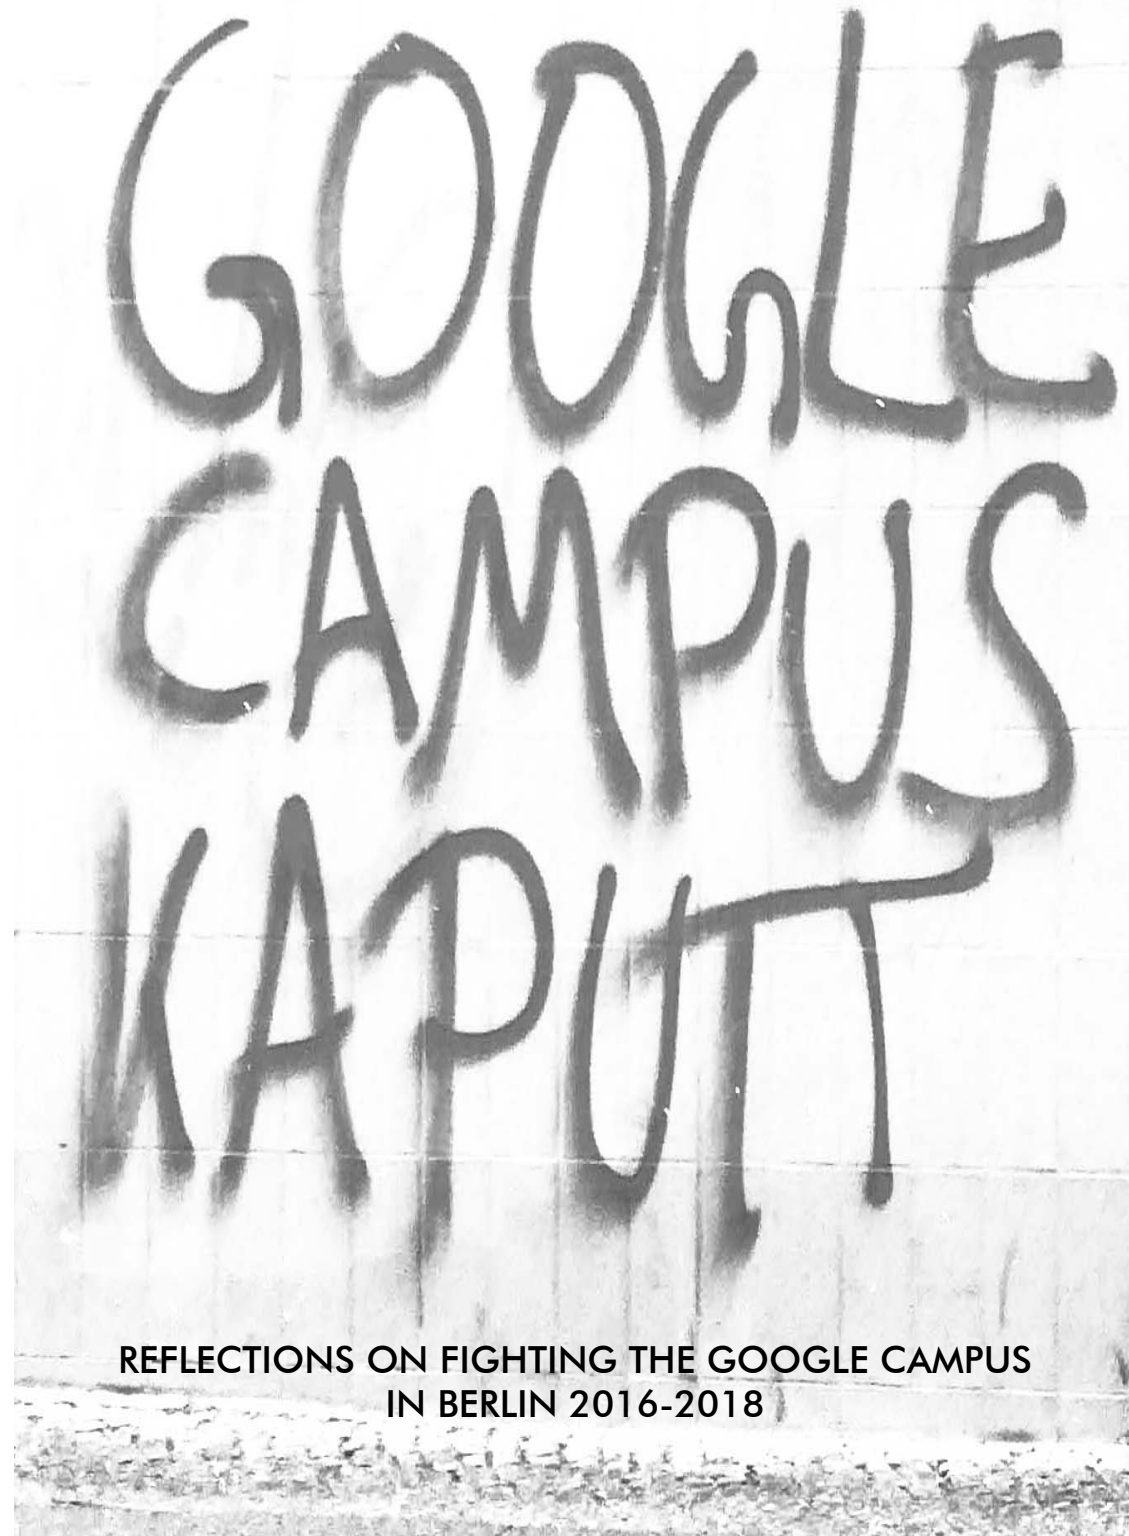 GOOGLE
CAMPUS
KAPUTT
REFLECTIONS ON FIGHTING THE GOOGLE CAMPUS
IN BERLIN 2016-2018